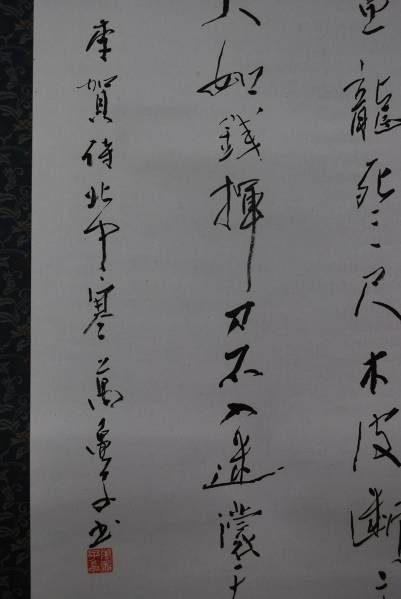 魚龍死三尺木皮斷文
大如錢揮刀不入迷濛天
李賀詩北中寒 萬里子書